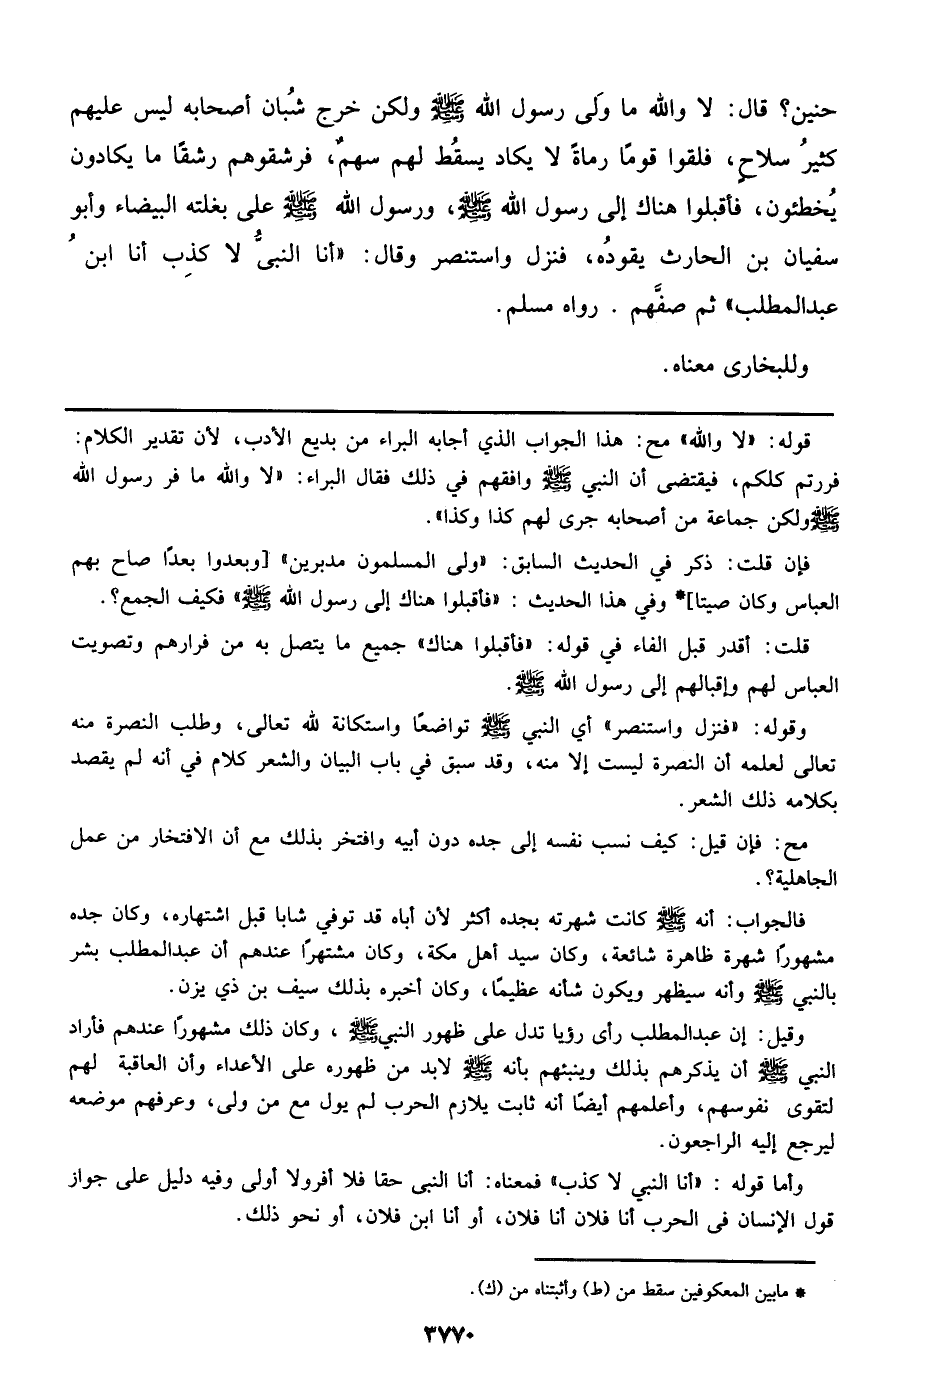 حنين؟ قال: لا والله ما وَلى رسول الله ﷺ ولكن خرج شُبان أصحابه ليس عليهم
كثيرُ سلاحٍ، فلقوا قومًا رماةً لا يكاد يسقُط لهم سهمٌ، فرشقوهم رشقًا ما يكادون
يُخطئون، فأقبلوا هناك إلى رسول الله ﷺ، ورسول الله ﷺ على بغلته البيضاء وأبو
سفيان بن الحارث يقودُه، فنزل واستنصر وقال: «أنا النبىُّ لا كذِب أنا ابن ُ
عبدالمطلب» ثم صفَّهم . رواه مسلم.
وللبخارى معناه.
قوله: «لا والله» مح: هذا الجواب الذي أجابه البراء من بديع الأدب، لأن تقدير الكلام:
فررتم كلكم، فيقتضى أن النبي ﷺ وافقهم في ذلك فقال البراء: «لا والله ما فر رسول الله
ﷺولكن جماعة من أصحابه جرى لهم كذا وكذا».
فإن قلت: ذكر في الحديث السابق: «ولى المسلمون مدبرين» [وبعدوا بعدًا صاح بهم
العباس وكان صيتا]* وفي هذا الحديث : «فأقبلوا هناك إلى رسول الله ﷺ» فكيف الجمع؟.
قلت: أقدر قبل الفاء في قوله: «فأقبلوا هناك» جميع ما يتصل به من فرارهم وتصويت
العباس لهم وإقبالهم إلى رسول الله ﷺ.
وقوله: «فنزل واستنصر» أي النبي ﷺ تواضعًا واستكانة لله تعالى، وطلب النصرة منه
تعالى لعلمه أن النصرة ليست إلا منه، وقد سبق في باب البيان والشعر كلام في أنه لم يقصد
بكلامه ذلك الشعر.
مح: فإن قيل: كيف نسب نفسه إلى جده دون أبيه وافتخر بذلك مع أن الافتخار من عمل
الجاهلية؟.
فالجواب: أنه ﷺ كانت شهرته بجده أكثر لأن أباه قد توفي شابا قبل اشتهاره، وكان جده
مشهورًا شهرة ظاهرة شائعة، وكان سيد أهل مكة، وكان مشتهرًا عندهم أن عبدالمطلب بشر
بالنبي ﷺ وأنه سيظهر ويكون شأنه عظيمًا، وكان أخبره بذلك سيف بن ذي يزن.
وقيل: إن عبدالمطلب رأى رؤيا تدل على ظهور النبيﷺ ، وكان ذلك مشهورًا عندهم فأراد
النبي ﷺ أن يذكرهم بذلك وينبئهم بأنه ﷺ لابد من ظهوره على الأعداء وأن العاقبة لهم
لتقوى نفوسهم، وأعلمهم أيضًا أنه ثابت يلازم الحرب لم يول مع من ولى، وعرفهم موضعه
ليرجع إليه الراجعون.
وأما قوله : «أنا النبي لا كذب» فمعناه: أنا النبى حقا فلا أفرولا أولى وفيه دليل على جواز
قول الإنسان فى الحرب أنا فلان أنا فلان، أو أنا ابن فلان، أو نحو ذلك.
* مابين المعكوفين سقط من (ط) وأثبتناه من (ك).
٣٧٧٠